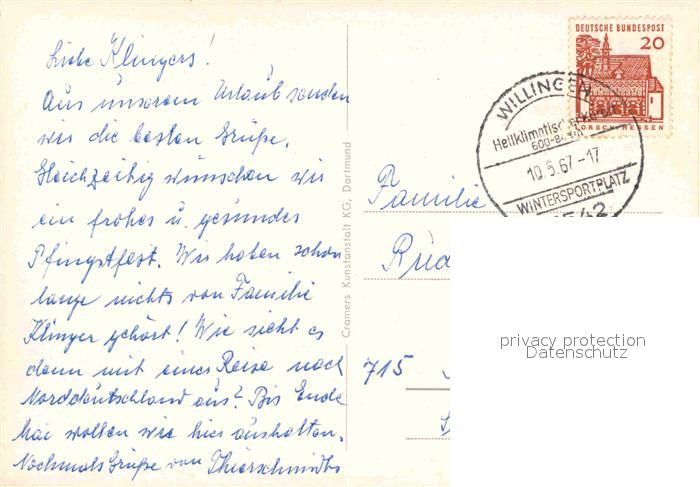 Liebe Klingers!
Aus unserem Urlaub senden
wir die besten Grüße.
Gleichzeitig wünschen wir
ein frohes u. gesundes
Pfingstfest. Wir haben schon
lange nichts von Familie
Klinger gehört! Wie sieht es
denn mit einer Reise nach
Norddeutschland aus? Bis Ende
Mai wollen wir hier aushalten.
Nochmals Grüße von Thierschmidts
Cramers Kunstanstalt KG, Dortmund
DEUTSCHE BUNDESPOST
20
LORSCH HESSEN
WILLINGEN
Heilklimatischer Kurort
600-843m
10.5.67-17
WINTERSPORTPLATZ
3542
Familie
715
privacy protection
Datenschutz